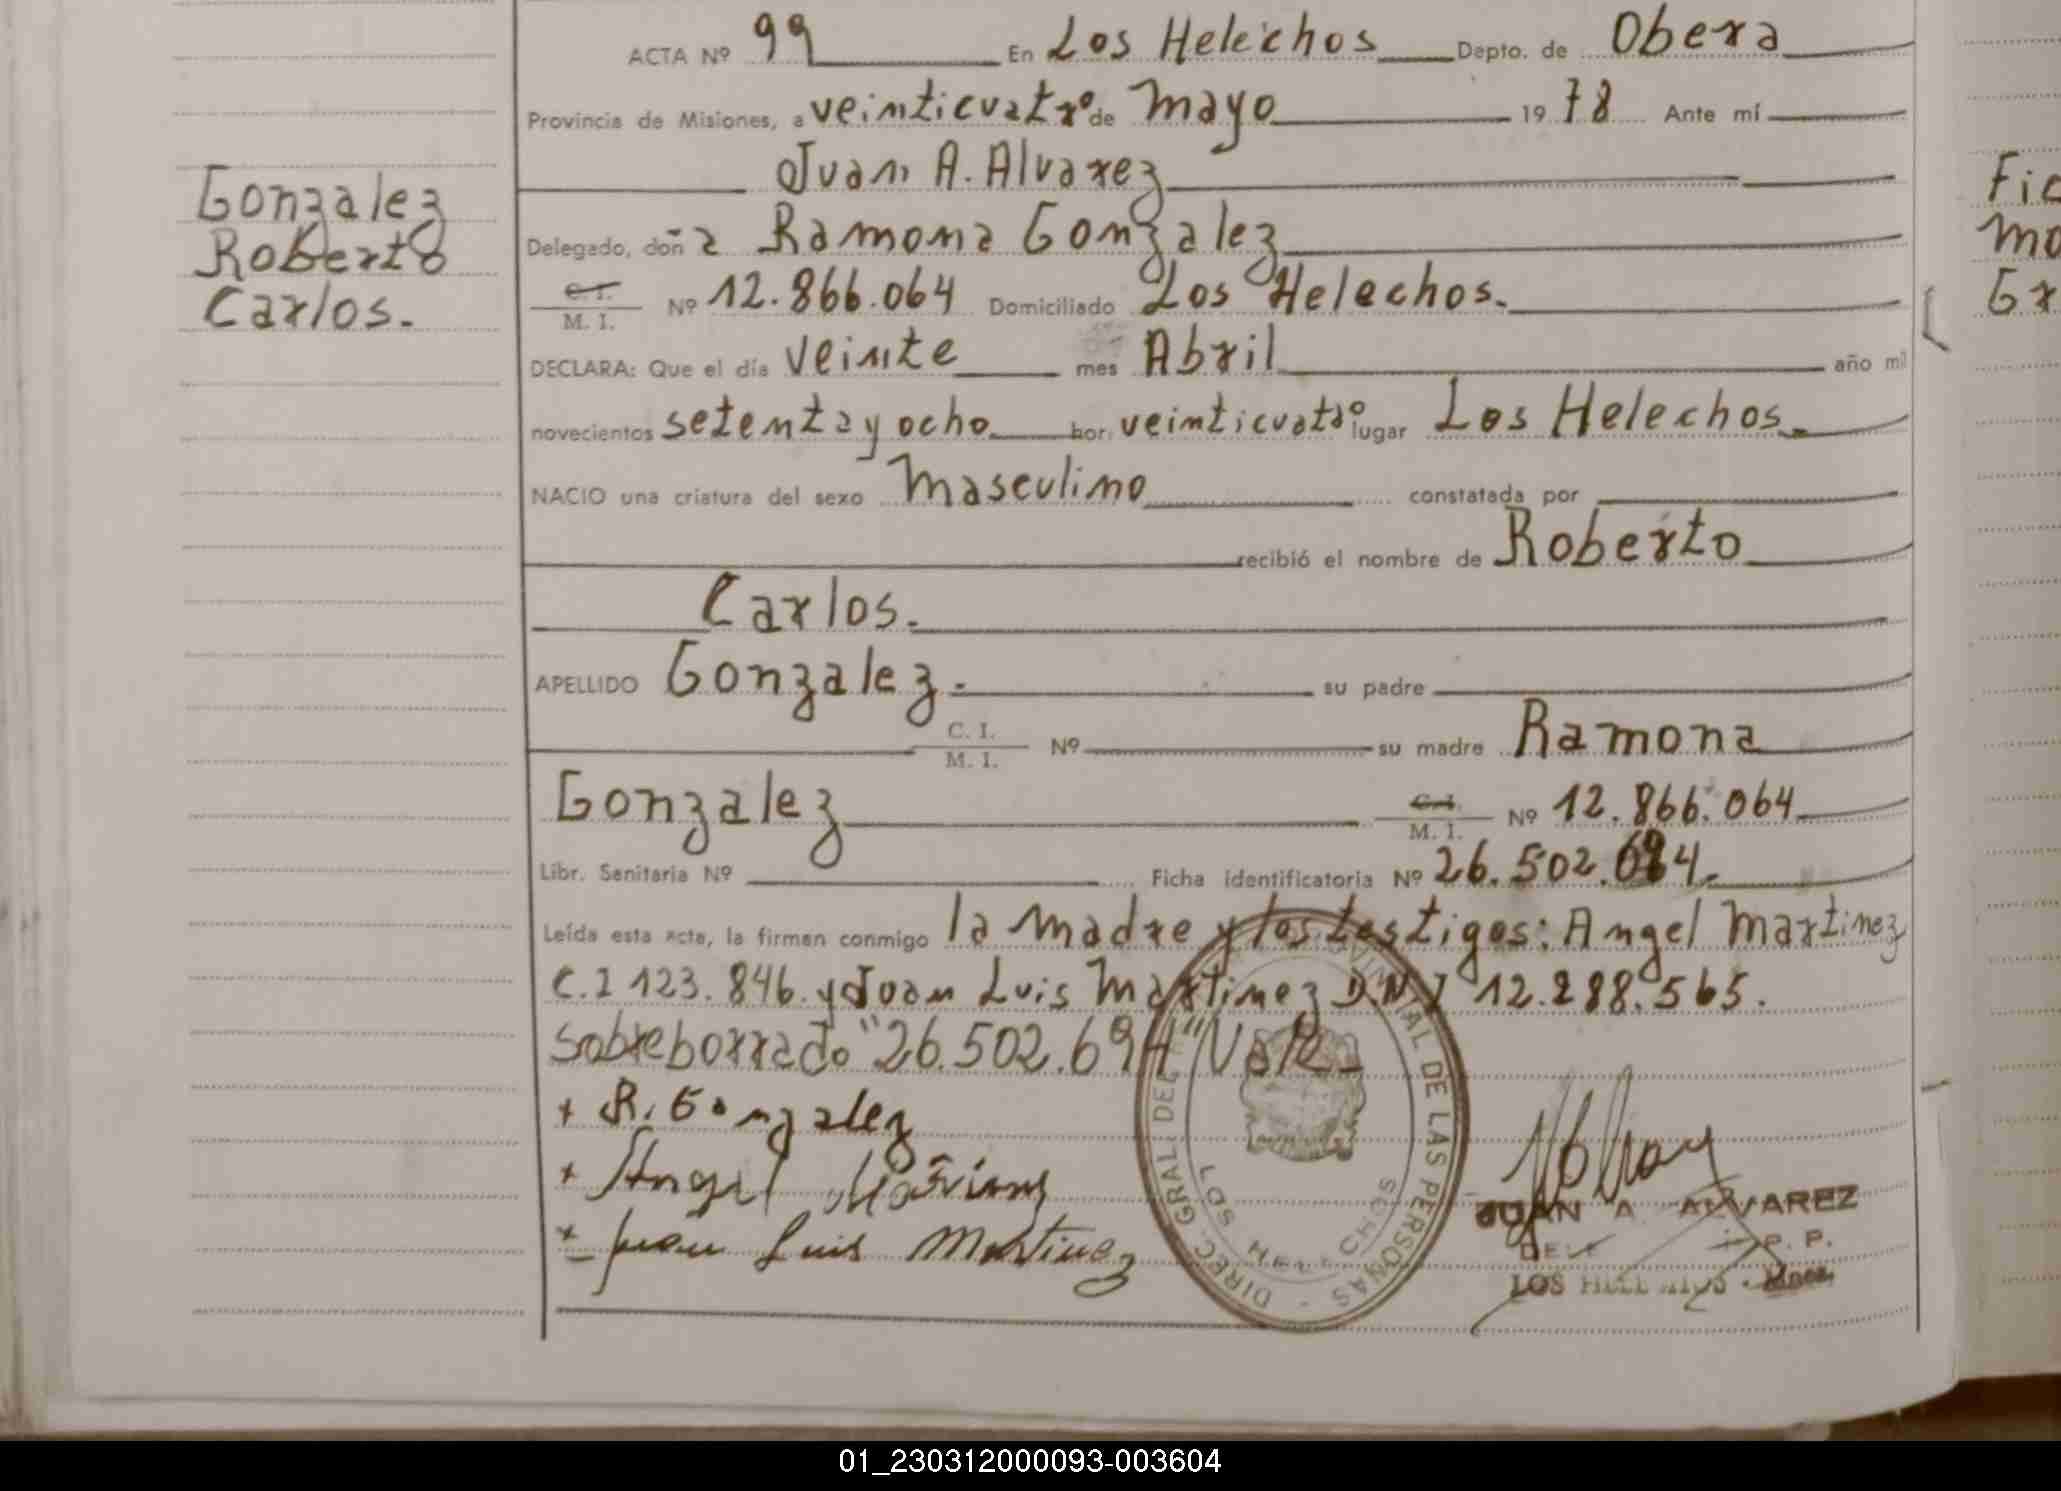 ACTA Nº 99 En Los Helechos Depto. de Obera
Provincia de Misiones, a veinticuatro de Mayo 1978 Ante mí
Juan A. Alvarez
Gonzalez
Roberto
Carlos.
Delegado, doña Ramona Gonzalez
C. I.
M. I. Nº 12.866.064 Domiciliado Los Helechos.
DECLARA: Que el día Veinte mes Abril año mil
novecientos setenta y ocho hor. veinticuatro lugar Los Helechos.
NACIO una criatura del sexo Masculino constatada por
recibió el nombre de Roberto
Carlos.
APELLIDO Gonzalez.- su padre
C. I.
M. I. Nº su madre Ramona
Gonzalez C. I.
M. I. Nº 12.866.064
Libr. Sanitaria Nº Ficha identificatoria Nº 26.502.694.
Leída esta acta, la firman conmigo la Madre y los testigos: Angel Martinez
C.I 123.846. y Juan Luis Martinez D.N.I 12.288.565.
Sobreborrado "26.502.694" Vale
+ R. Gonzalez
+ Angel
+ Juan Luis Martinez
DIREC. GRAL. DE LAS PERSONAS
LOS HELECHOS
JUAN A. ALVAREZ
LOS
Fic
Mo
Gr
01_230312000093-003604